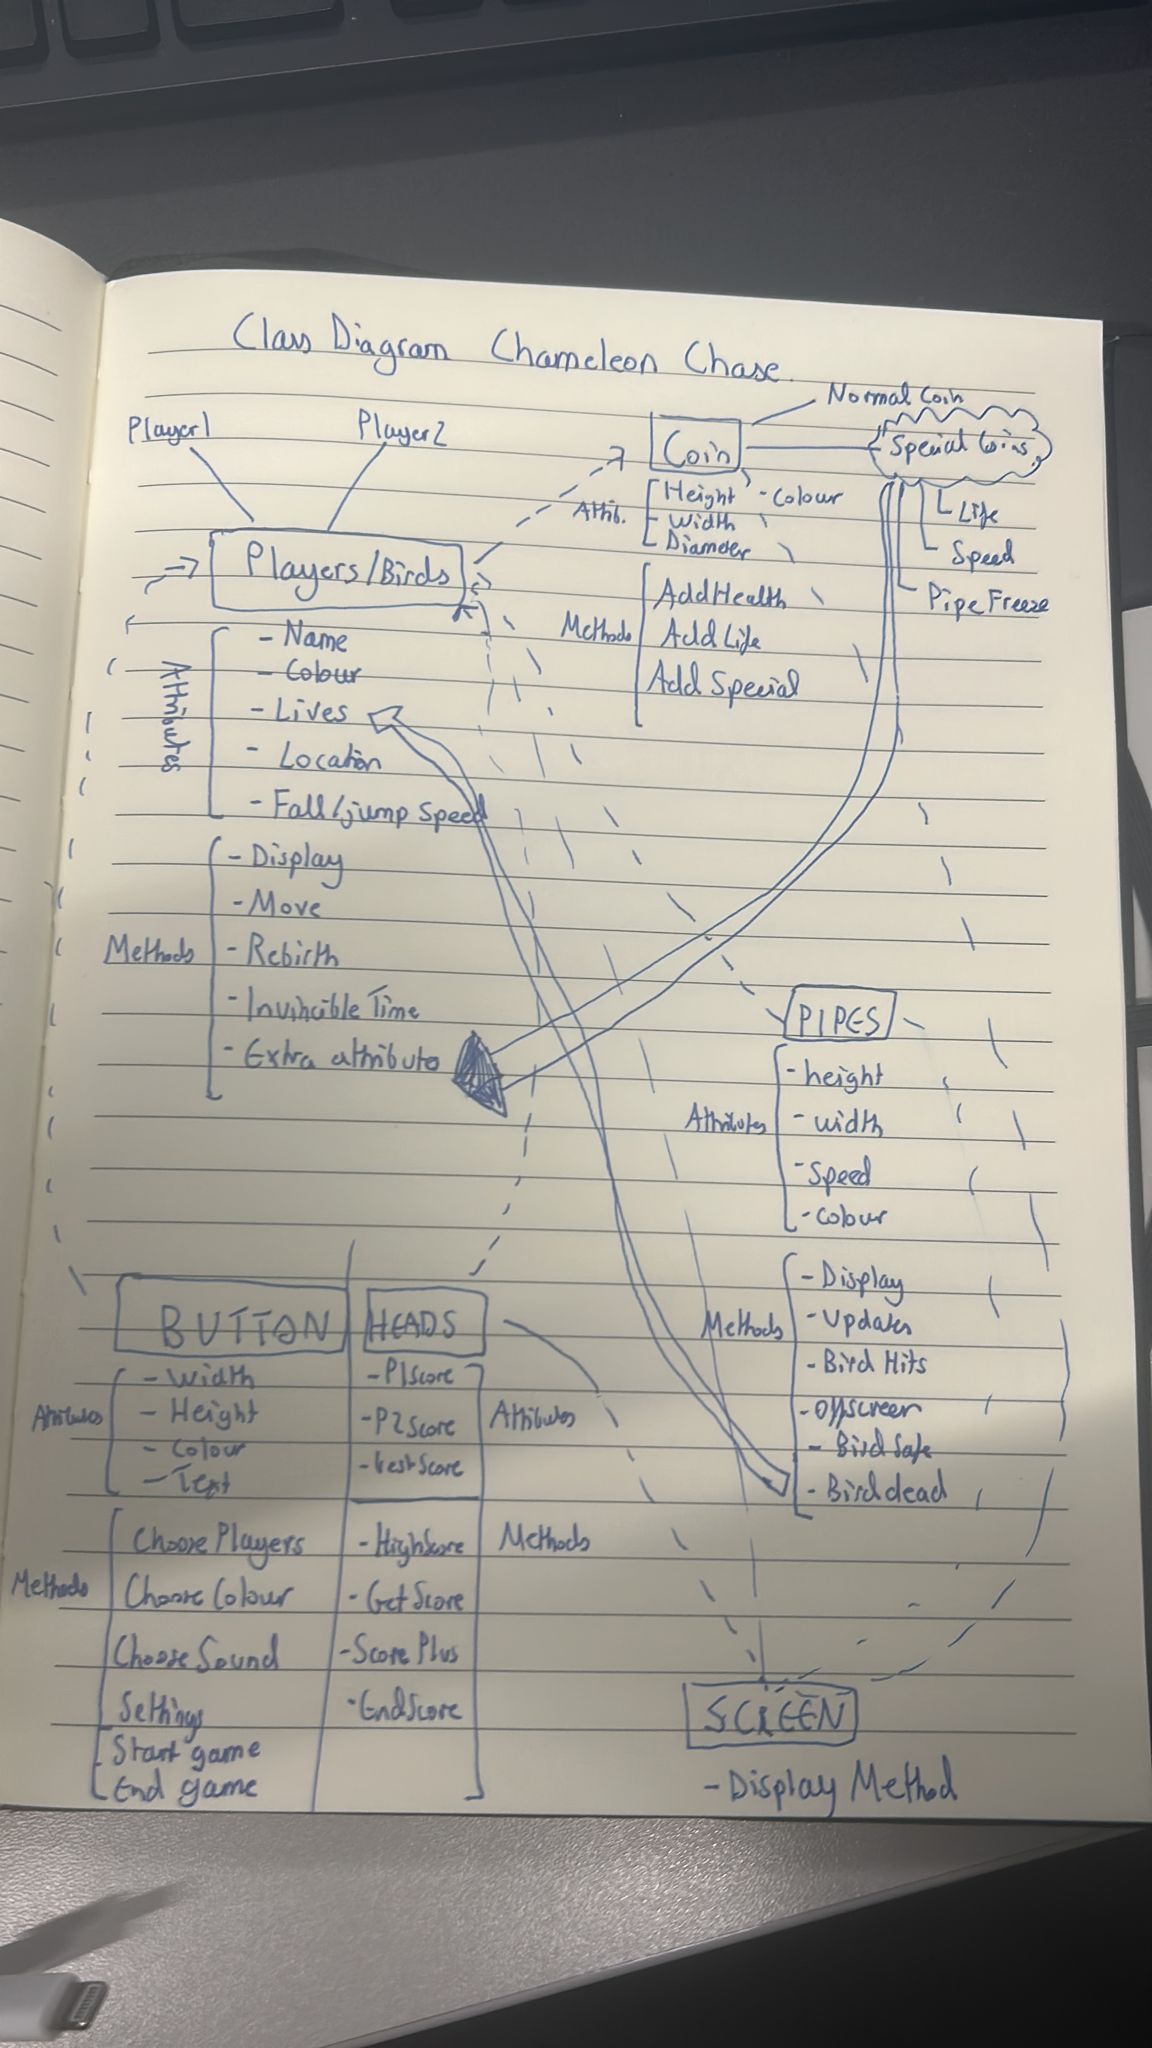 Class Diagram Chameleon Chase.
Player1
Player2
Players/Birds
Attributes
- Name
- Colour
- Lives
- Location
- Fall/jump Speed
Methods
- Display
- Move
- Rebirth
- Invincible Time
- Extra attribute
Normal Coin
Coin
Special Coins
Life
Speed
Pipe Freeze
Attrib.
Height - Colour
Width
Diameter
Methods
Add Health
Add Life
Add Special
PIPES
Attributes
- height
- width
- Speed
- Colour
Methods
- Display
- Updates
- Bird Hits
- Offscreen
- Bird Safe
- Bird dead
BUTTON
Attributes
- Width
- Height
- Colour
- Text
Methods
Choose Players
Choose Colour
Choose Sound
Settings
Start game
End game
HEADS
Attributes
- P1Score
- P2Score
- BestScore
Methods
- HighScore
- Get Score
- Score Plus
- EndScore
SCREEN
- Display Method